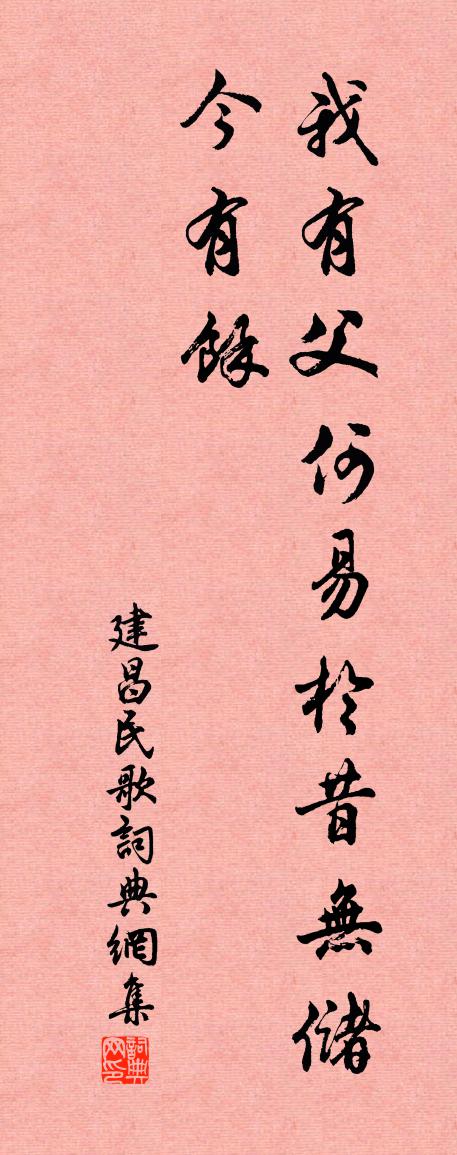 我有父何易於昔無儲
今有餘
建昌民歌詞典網集
詞典
网印